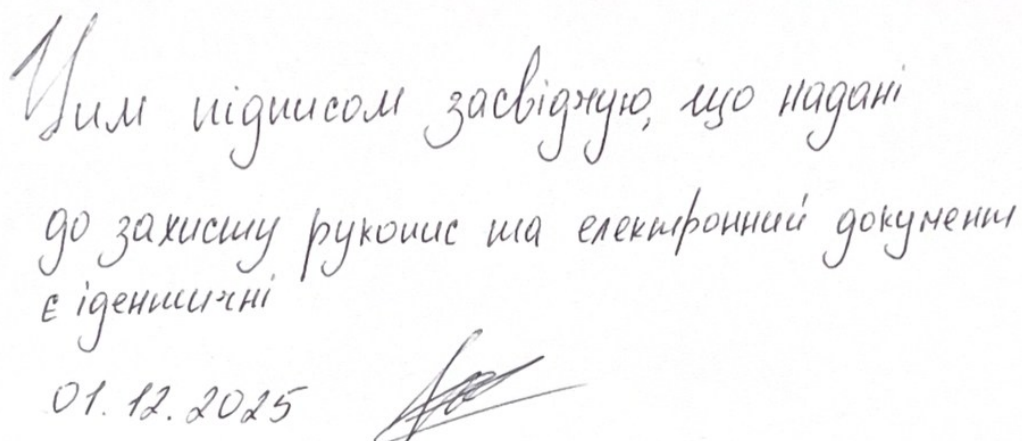 Цим підписом засвідчую, що надані
до захисту рукопис та електронний документ
є ідентичні
01.12.2025